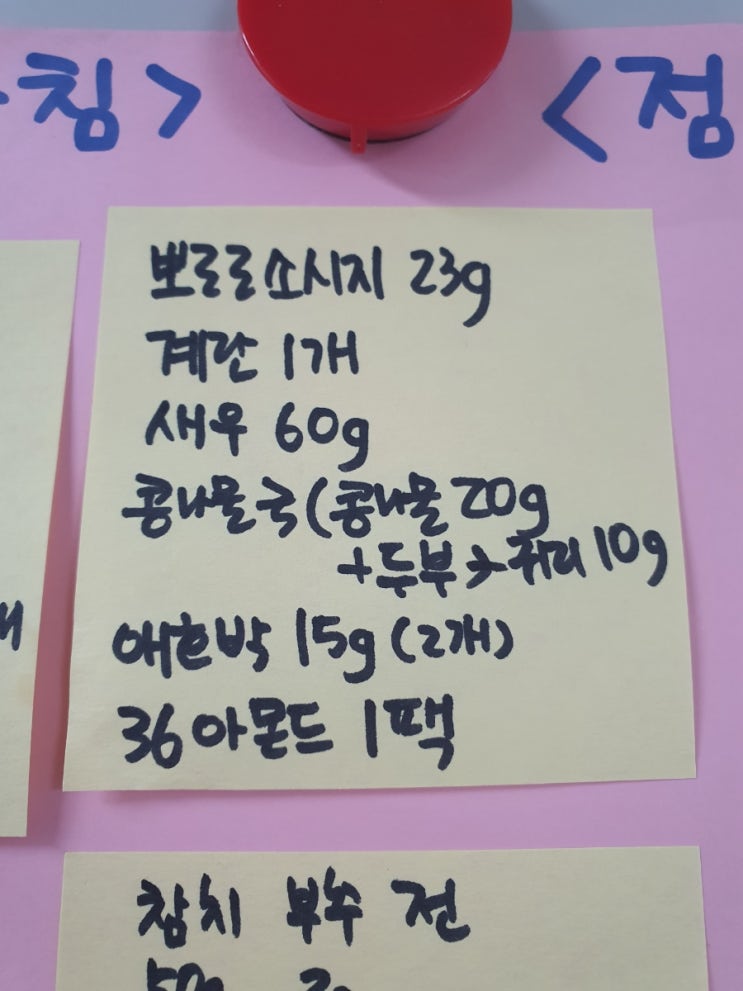 침>
<점
뽀로로소시지 23g
계란 1개
새우 60g
콩나물국(콩나물 20g
+두부 귀리 10g
애호박 15g (2개)
36아몬드 1팩
참치 부추 전
50g